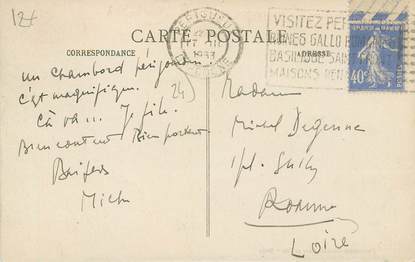 12
CARTE POSTALE
CORRESPONDANCE
ADRESSE
PERIGUEUX
1933
VISITEZ PER
RUINES GALLO RO
BASILIQUE SAI
MAISONS REN
40c
un Chambord périgourdin...
C'est magnifique.
Çà va... Je file.
Bien content Bien portant
Baisers
24
Madame
Michel
1 pl.
Roanne
Loire